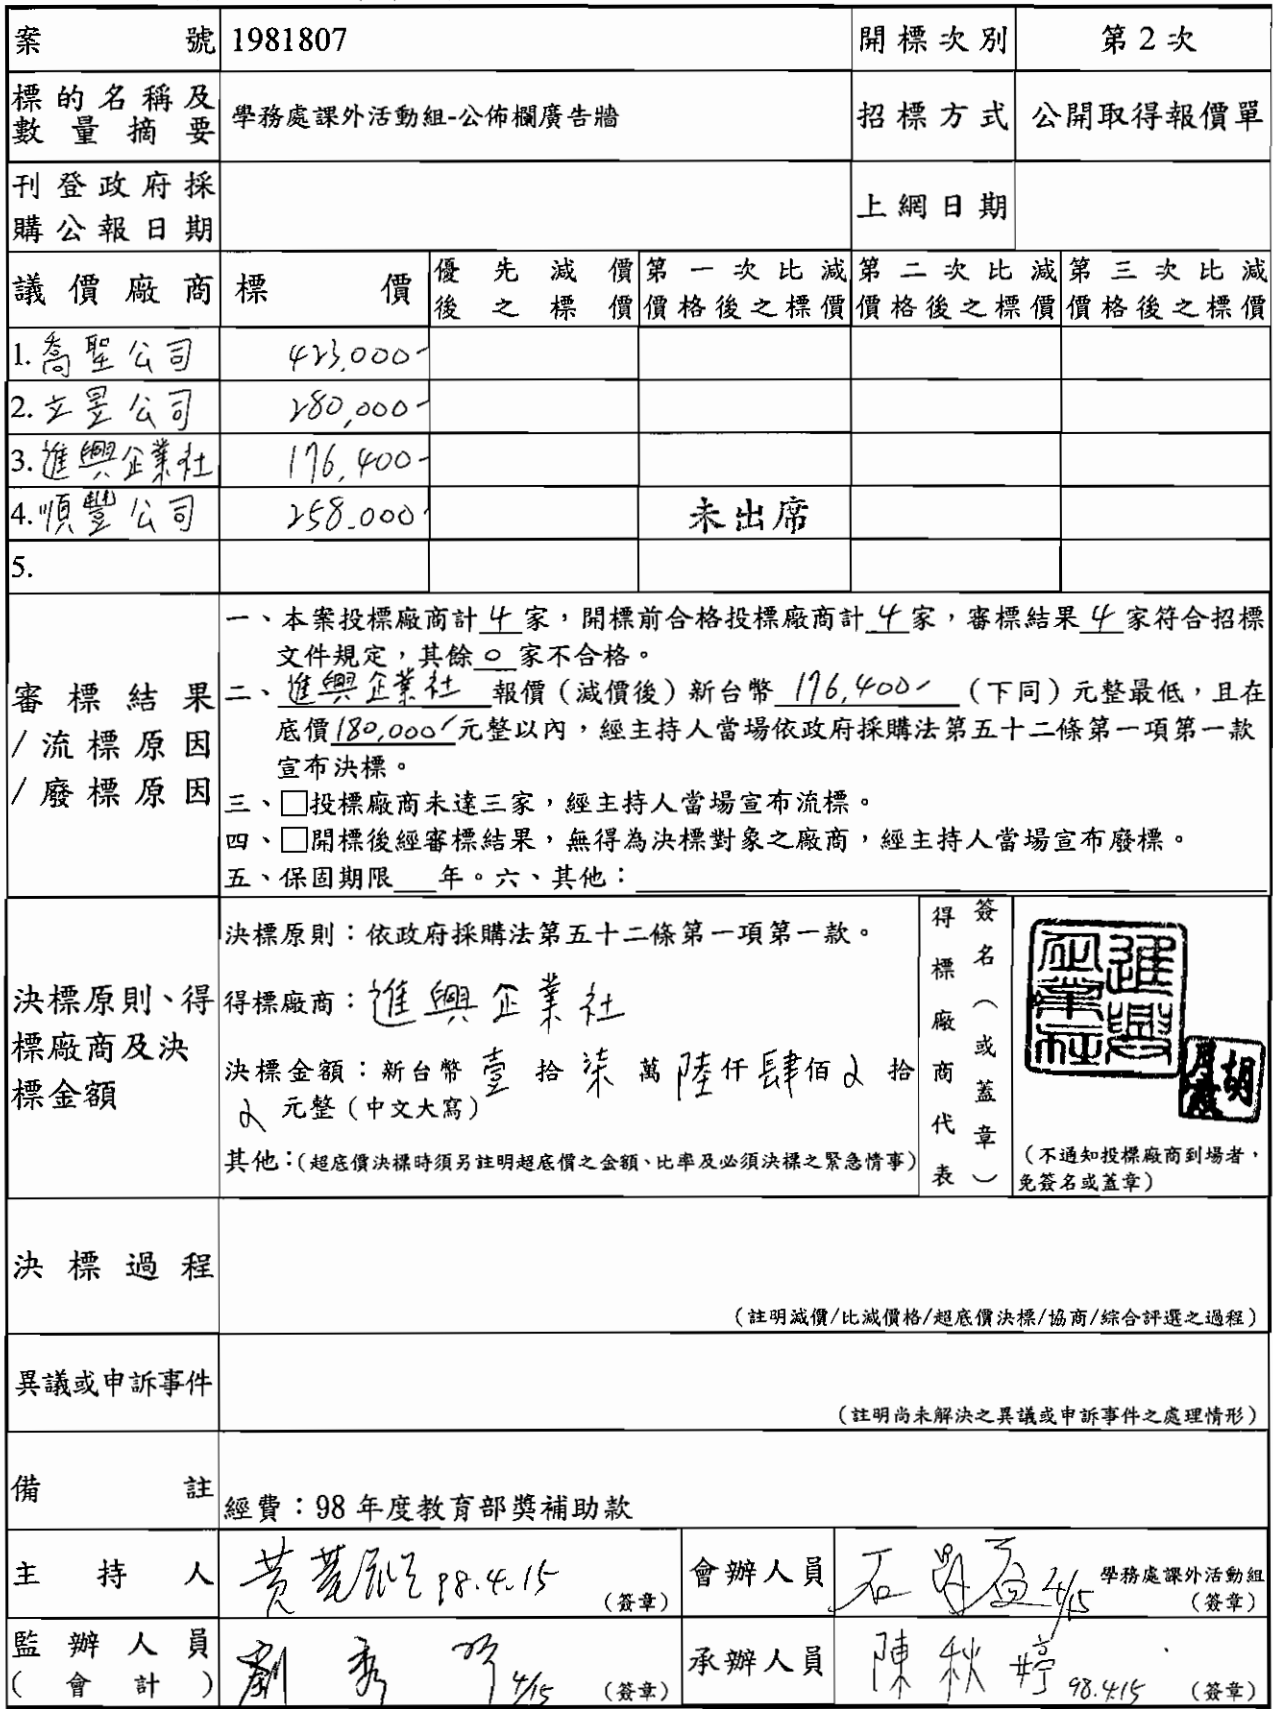 案號 1981807 開標次別 第2次
標的名稱及數量摘要 學務處課外活動組-公佈欄廣告牆 招標方式 公開取得報價單
刊登政府採購公報日期 上網日期
議價廠商 標價 優先減價後之標價 第一次比減價格後之標價 第二次比減價格後之標價 第三次比減價格後之標價
1.喬聖公司 423,000-
2.立昱公司 280,000-
3.進興企業社 176,400-
4.順豐公司 258,000- 未出席
5.
審標結果/流標原因/廢標原因
一、本案投標廠商計 4 家，開標前合格投標廠商計 4 家，審標結果 4 家符合招標
文件規定，其餘 0 家不合格。
二、進興企業社 報價（減價後）新台幣 176,400- （下同）元整最低，且在
底價180,000-元整以內，經主持人當場依政府採購法第五十二條第一項第一款
宣布決標。
三、□投標廠商未達三家，經主持人當場宣布流標。
四、□開標後經審標結果，無得為決標對象之廠商，經主持人當場宣布廢標。
五、保固期限___年。六、其他：
決標原則、得標廠商及決標金額
決標原則：依政府採購法第五十二條第一項第一款。
得標廠商：進興企業社
決標金額：新台幣 壹 拾 柒 萬 陸 仟 肆 佰 0 拾
0 元整（中文大寫）
其他：(超底價決標時須另註明超底價之金額、比率及必須決標之緊急情事)
得標廠商代表
簽名（或蓋章）
進興企業社
胡
（不通知投標廠商到場者，
免簽名或蓋章）
決標過程
（註明減價/比減價格/超底價決標/協商/綜合評選之過程）
異議或申訴事件
（註明尚未解決之異議或申訴事件之處理情形）
備註
經費：98 年度教育部獎補助款
主持人 98.4.15 （簽章） 會辦人員 4/15 學務處課外活動組（簽章）
監辦人員（會計） 劉秀 4/15 （簽章） 承辦人員 陳秋婷 98.4.15 （簽章）